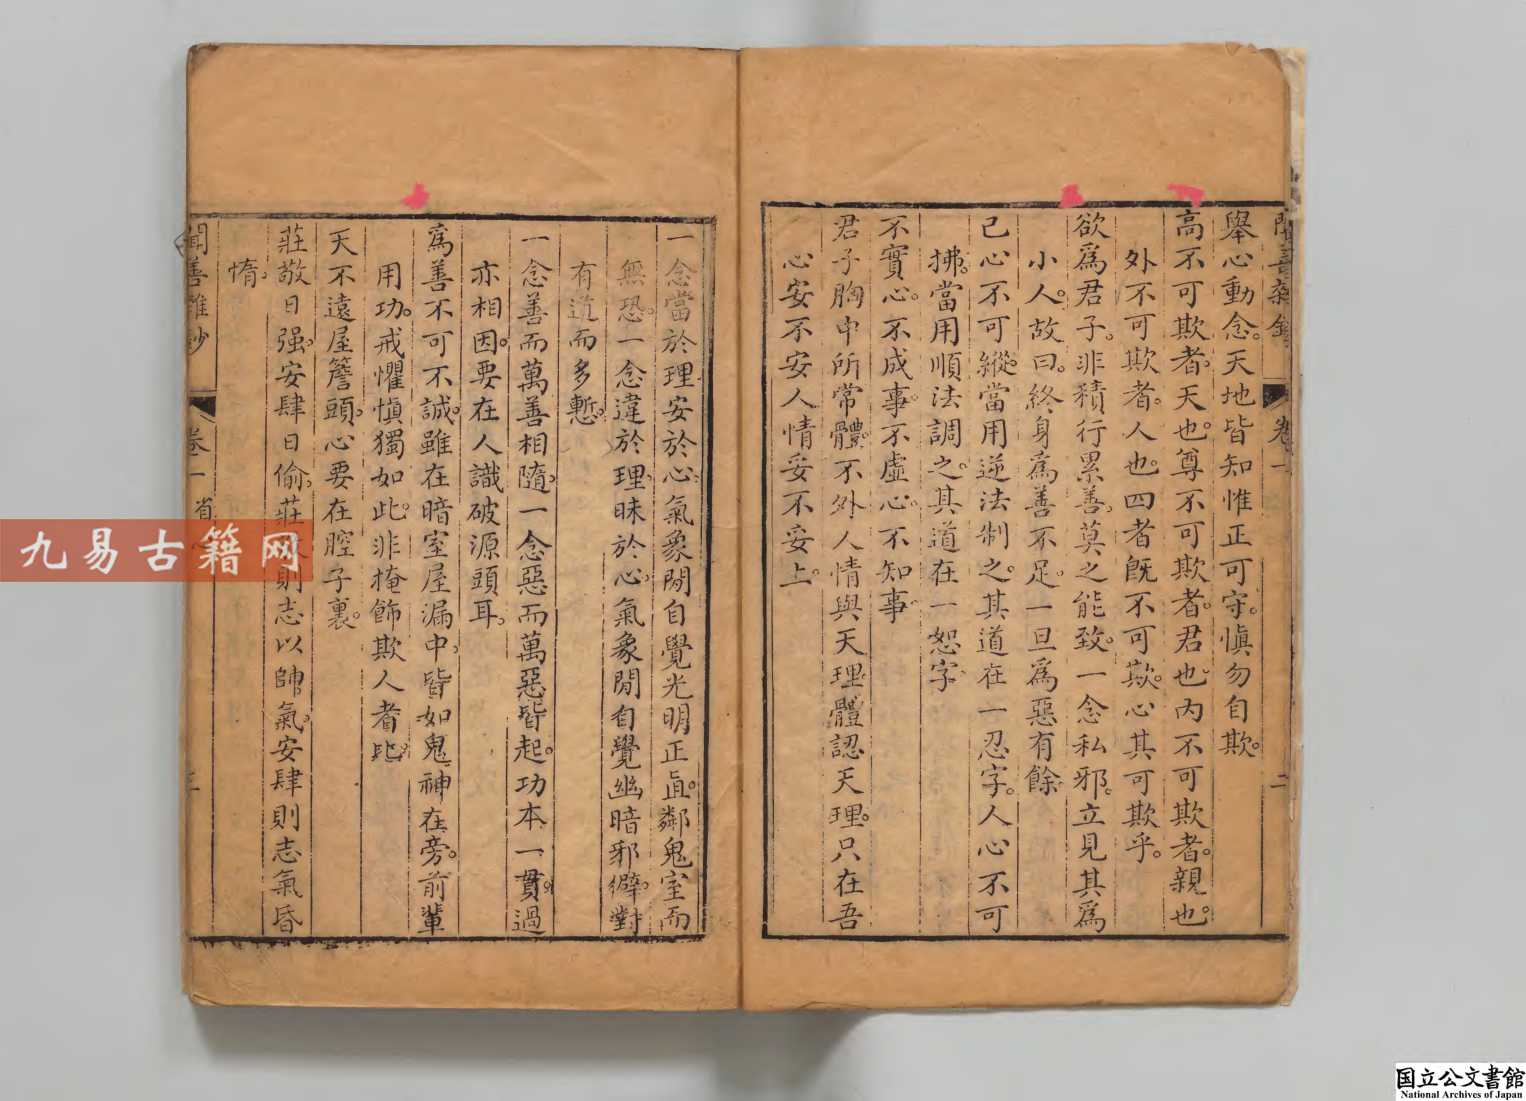 卷一
二
舉心動念。天地皆知惟正可守。慎勿自欺。
高不可欺者。天也。尊不可欺者。君也内不可欺者。親也。
外不可欺者。人也。四者既不可欺。心其可欺乎。
欲爲君子。非積行累善。莫之能致。一念私邪。立見其爲
小人。故曰。終身爲善不足。一旦爲惡有餘
己心不可縱。當用逆法制之。其道在一忍字。人心不可
拂。當用順法調之。其道在一恕字
不實心。不成事。不虚心。不知事
君子胸中所常體。不外人情與天理。體認天理。只在吾
心安不安人情妥不妥上。
一念當於理安於心。氣象閒自覺光明正直。鄰鬼室而
無恐。一念違於理。昧於心。氣象閒自覺幽暗邪僻。對
有道而多慙。
一念善而萬善相隨。一念惡而萬惡皆起。功本一貫。過
亦相因。要在人識破源頭耳。
爲善不可不誠。雖在暗室屋漏中。皆如鬼神在旁。前輩
用功。戒懼慎獨如此。非掩飾欺人者比。
天不遠屋簷頭。心要在腔子裏。
莊敬日强。安肆日偷。莊則志以帥氣。安肆則志氣昏
惰。
聞善雜鈔
卷一
省
九易古籍网
国立公文書館
National Archives of Japan